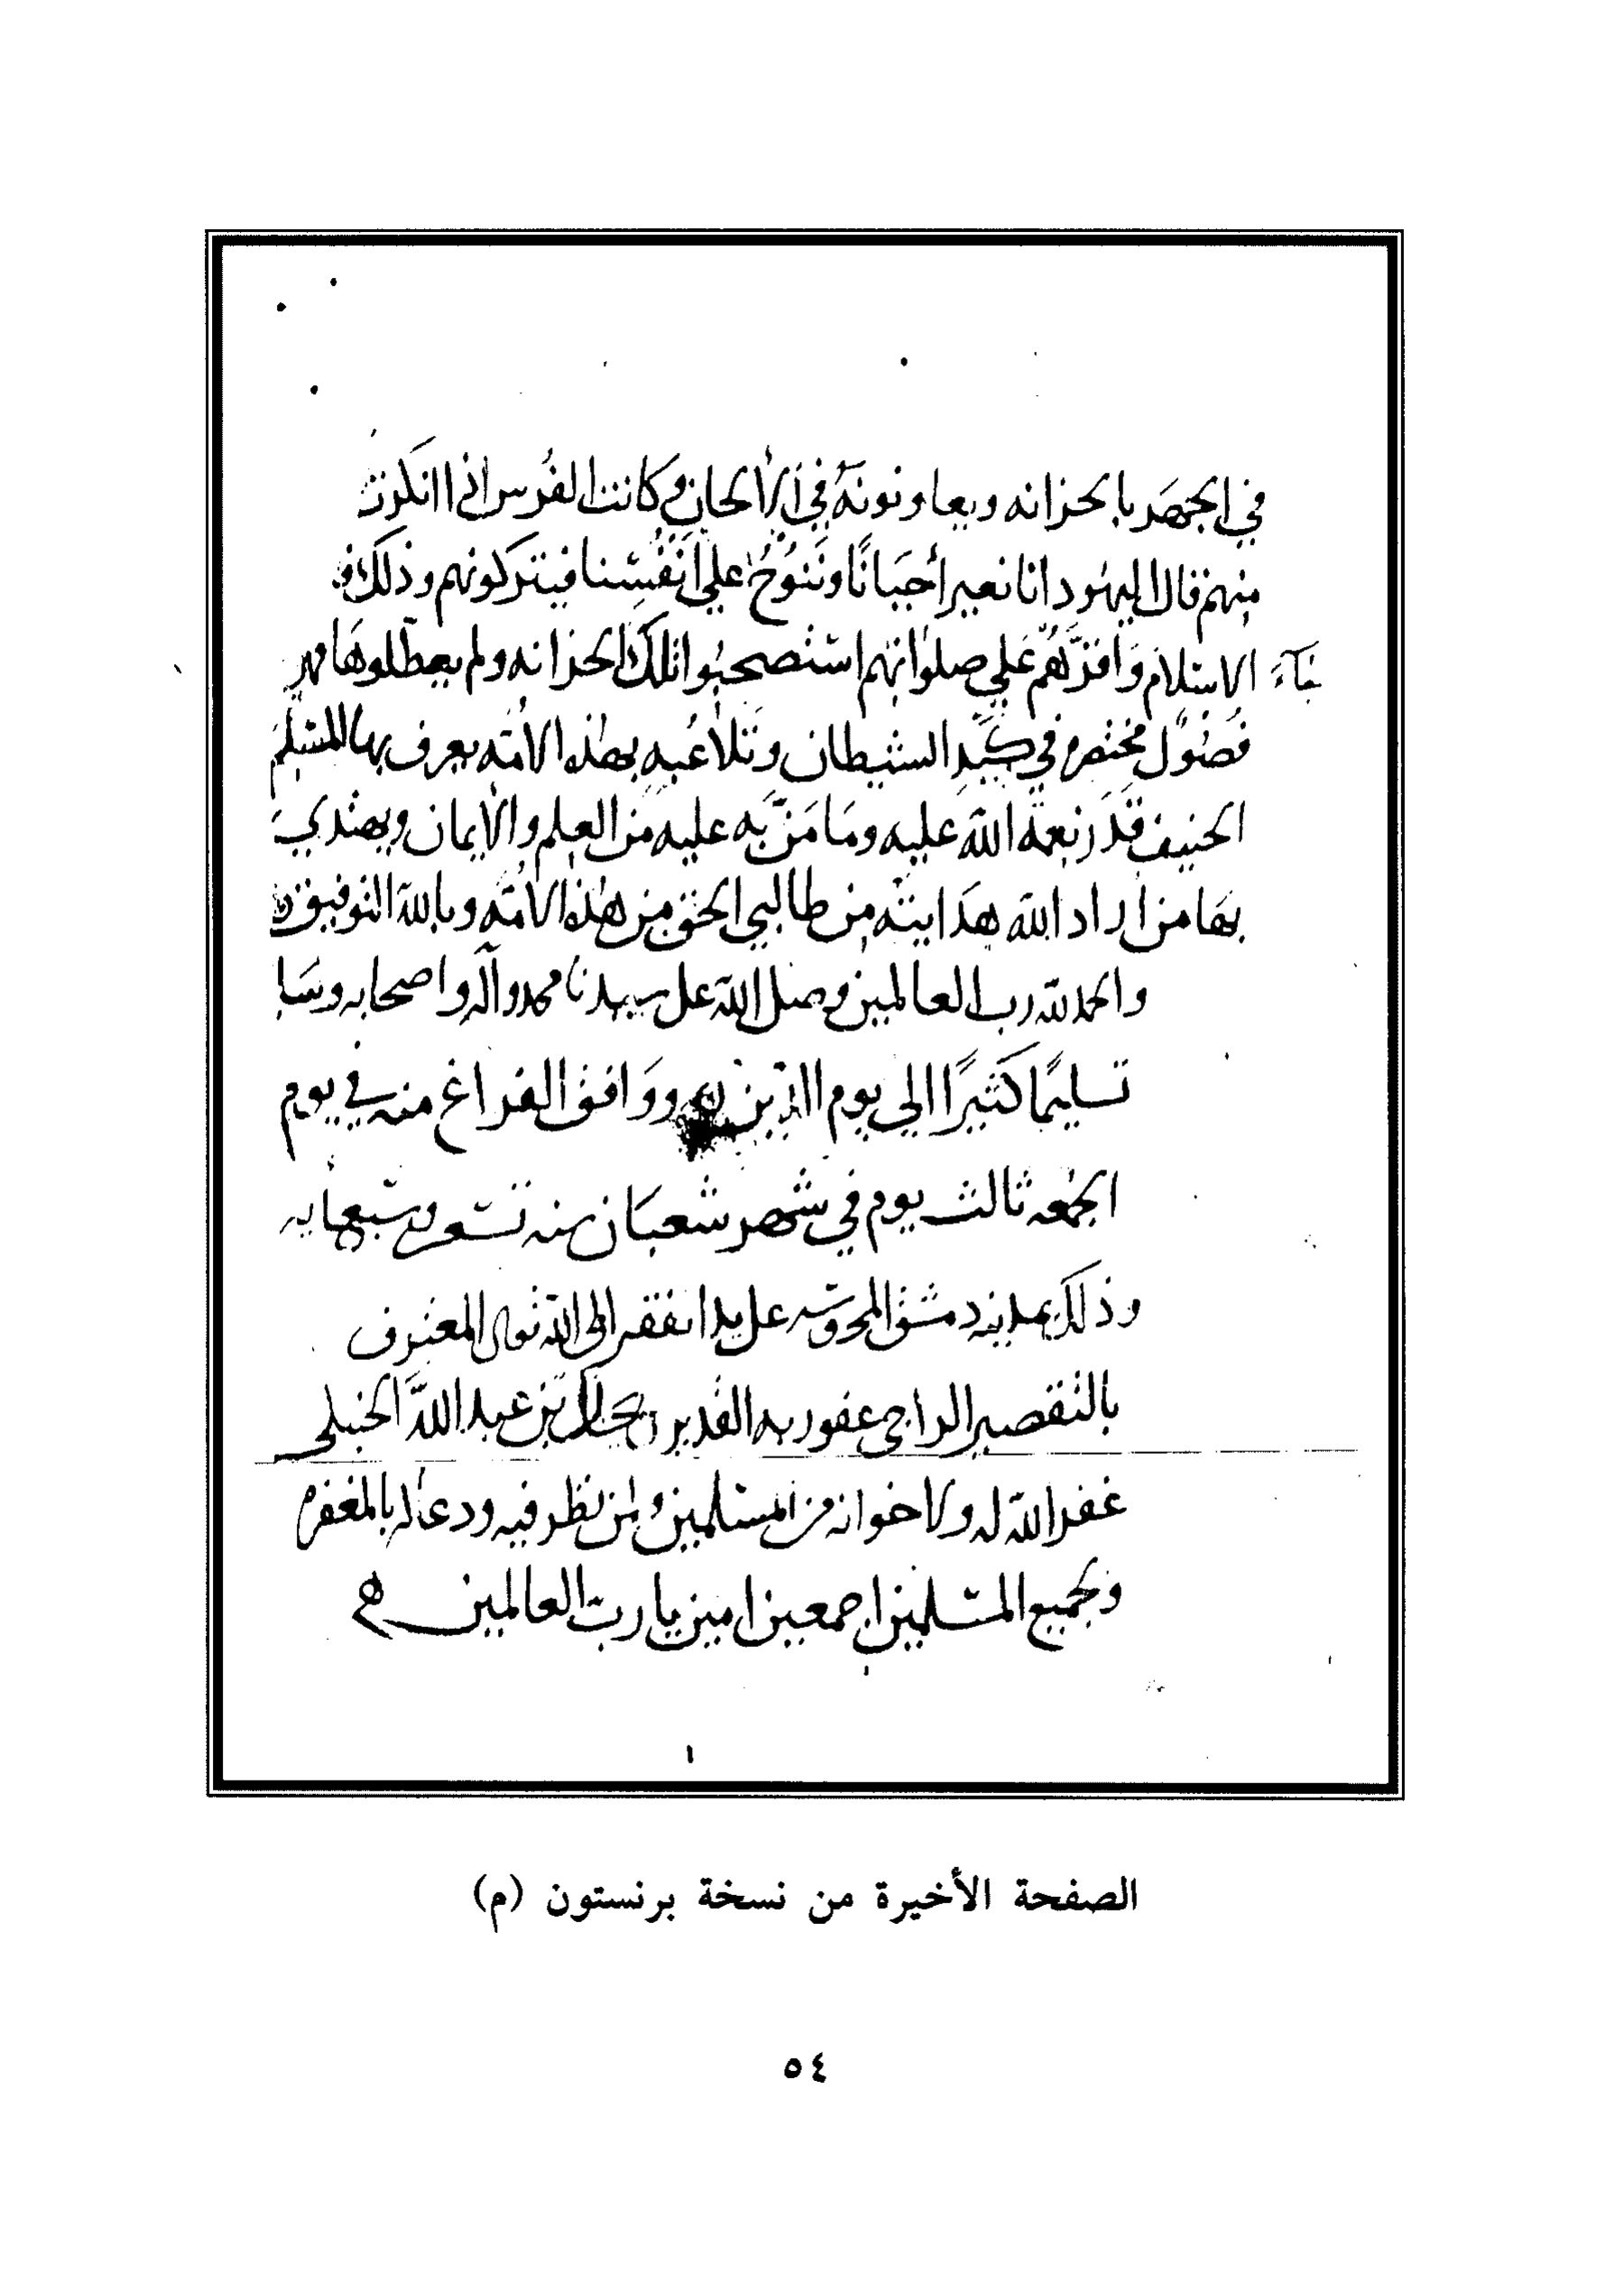 في الجهر بالحزانه ويعاونونه في الألحان وكانت الفرس اذا انكرت
منهم قال اليهود انا نعير أحيانًا وننوح على انفسنا فيتركونهم وذلك
جاء الاسلام واقرهم على صلواتهم استصحبوا تلك الحزانه ولم يعطلوها فهذه
فصول مختصره في كيد الشيطان وتلاعبه بهذه الامه يعرف بها المسلم
الحنيف قدر نعمة الله عليه وما من به عليه من العلم والايمان ويهتدي
بها من اراد الله هدايته من طالبي الحق من هذه الامه وبالله التوفيق
والحمد لله رب العالمين وصلى الله على سيدنا محمد وآله واصحابه وسلم
تسليمًا كثيرًا الى يوم الدين ووافق الفراغ منه في يوم
الجمعه ثالث يوم في شهر شعبان سنه وسبعمايه
وذلك بمدينه دمشق المحروسه على يد افقر الى الله تعالى المعترف
بالتقصير الراجي عفو ربه القدير بن عبد الله الحنبلي
غفر الله له ولاخوانه من المسلمين ولمن نظر فيه ودعا له بالمغفره
ولجميع المسلمين اجمعين امين يا رب العالمين
الصفحة الأخيرة من نسخة برنستون (م)
٥٤